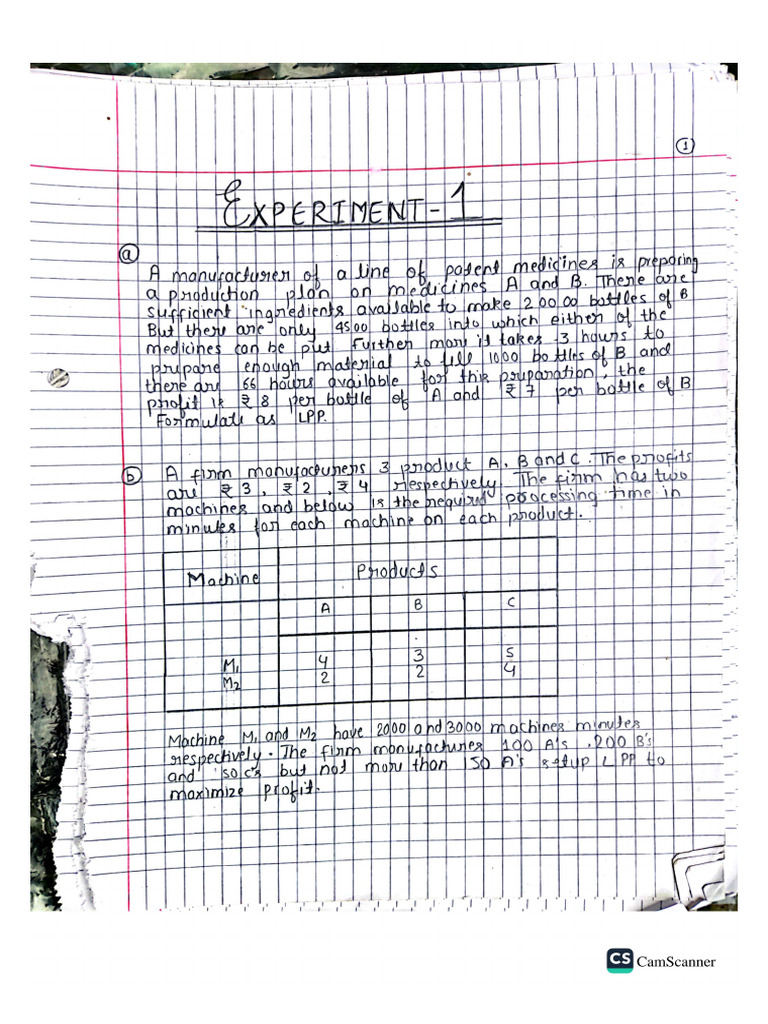 1
EXPERIMENT-1
a
A manufacturer of a line of patent medicines is preparing
a production plan on medicines A and B. There are
sufficient ingredients available to make 20000 bottles of B
But there are only 4500 bottles into which either of the
medicines can be put further more it takes 3 hours to
prepare enough material to fill 1000 bottles of B and
there are 66 hours available for this preparation, the
profit is ₹ 8 per bottle of A and ₹ 7 per bottle of B
Formulate as LPP.
b
A firm manufacturers 3 product A, B and C. The profits
are ₹ 3, ₹ 2, ₹ 4 respectively. The firm has two
machines and below is the required processing time in
minutes for each machine on each product.
Machine Products
A B C
M1 4 3 5
M2 2 2 4
Machine M1 and M2 have 2000 and 3000 machines minutes
respectively. The firm manufactures 100 A's, 200 B's
and 50 C's but not more than 150 A's setup LPP to
maximize profit.
CS CamScanner